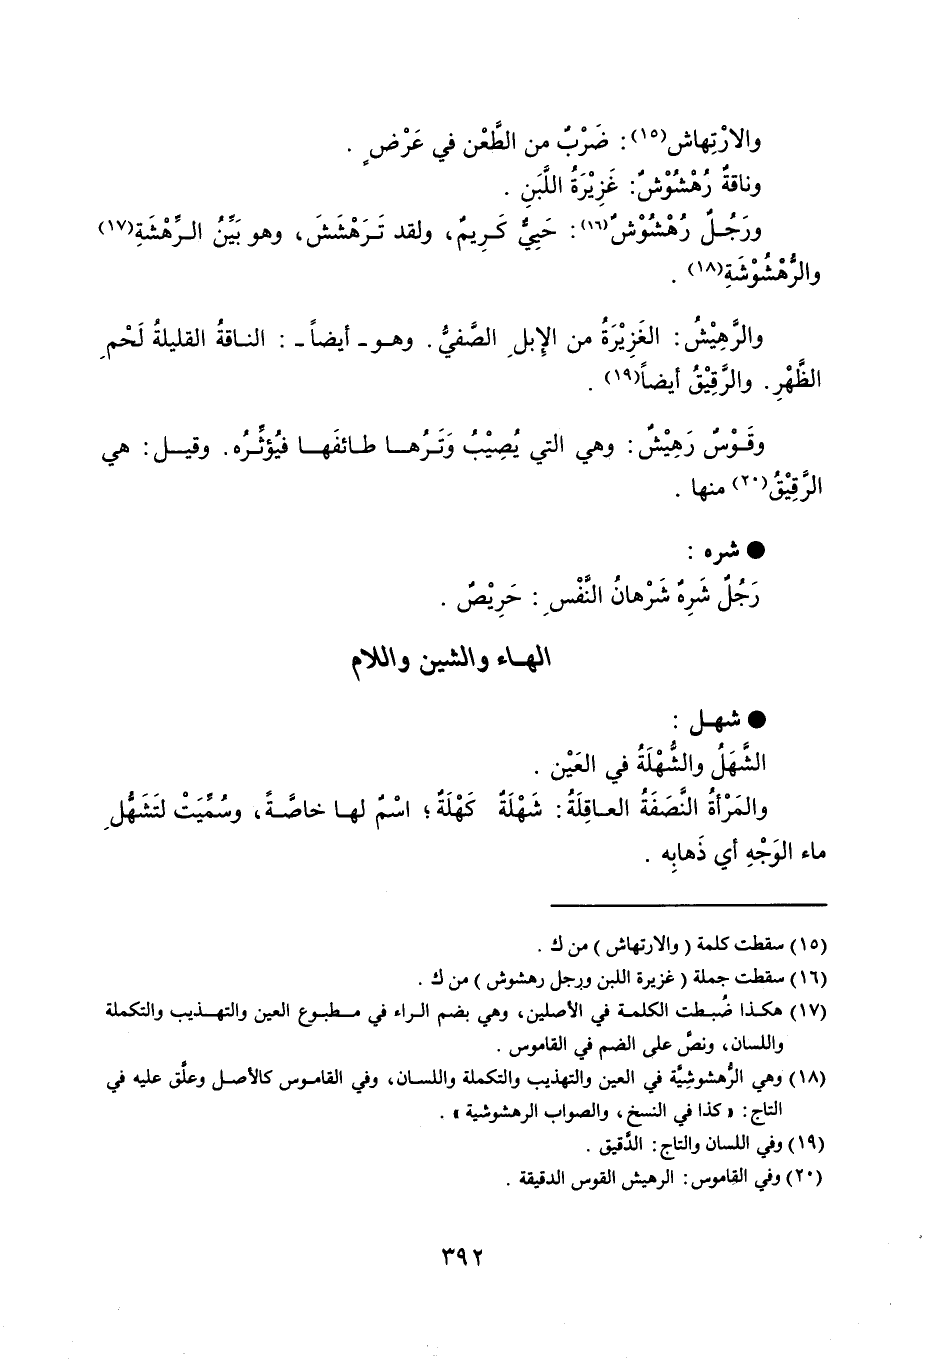 والارْتِهاش(١٥): ضَرْبٌ من الطَّعْن في عَرْضٍ .
وناقةٌ رُهْشُوْشٌ: غَزِيْرَةُ اللَّبَنِ .
ورَجُلٌ رُهْشُوْشٌ(١٦): حَيِيٌّ كَرِيمٌ، ولقد تَرَهْشَشَ، وهو بَيِّنُ الرِّهْشَةِ(١٧)
والرُّهْشُوْشَةِ(١٨) .
والرَّهِيْشُ: الغَزِيْرَةُ من الإِبلِ الصَّفيُّ. وهو ـ أيضاً ـ : الناقةُ القليلةُ لَحْمِ
الظَّهْرِ. والرَّقِيْقُ أيضاً(١٩) .
وقَوْسٌ رَهِيْشٌ: وهي التي يُصِيْبُ وَتَرُها طائفَها فيُؤثِّرُه. وقيل: هي
الرَّقِيْقُ(٢٠) منها .
● شره :
رَجُلٌ شَرِهٌ شَرْهانُ النَّفْسِ: حَرِيْصٌ .
الهاء والشين واللام
● شهل :
الشَّهَلُ والشُّهْلَةُ في العَيْن .
والمَرْأةُ النَّصَفَةُ العاقِلَةُ: شَهْلَةٌ كَهْلَةٌ؛ اسْمٌ لها خاصَّةً، وسُمِّيَتْ لتَشَهُّلِ
ماء الوَجْهِ أي ذَهابِه .
(١٥) سقطت كلمة ( والارتهاش ) من ك .
(١٦) سقطت جملة ( غزيرة اللبن ورجل رهشوش ) من ك .
(١٧) هكذا ضُبطت الكلمة في الأصلين، وهي بضم الراء في مطبوع العين والتهذيب والتكملة
واللسان، ونصَّ على الضم في القاموس .
(١٨) وهي الرُّهشوشِيَّة في العين والتهذيب والتكملة واللسان، وفي القاموس كالأصل وعلَّق عليه في
التاج: «كذا في النسخ، والصواب الرهشوشية» .
(١٩) وفي اللسان والتاج: الدَّقيق .
(٢٠) وفي القاموس: الرهيش القوس الدقيقة .
٣٩٢